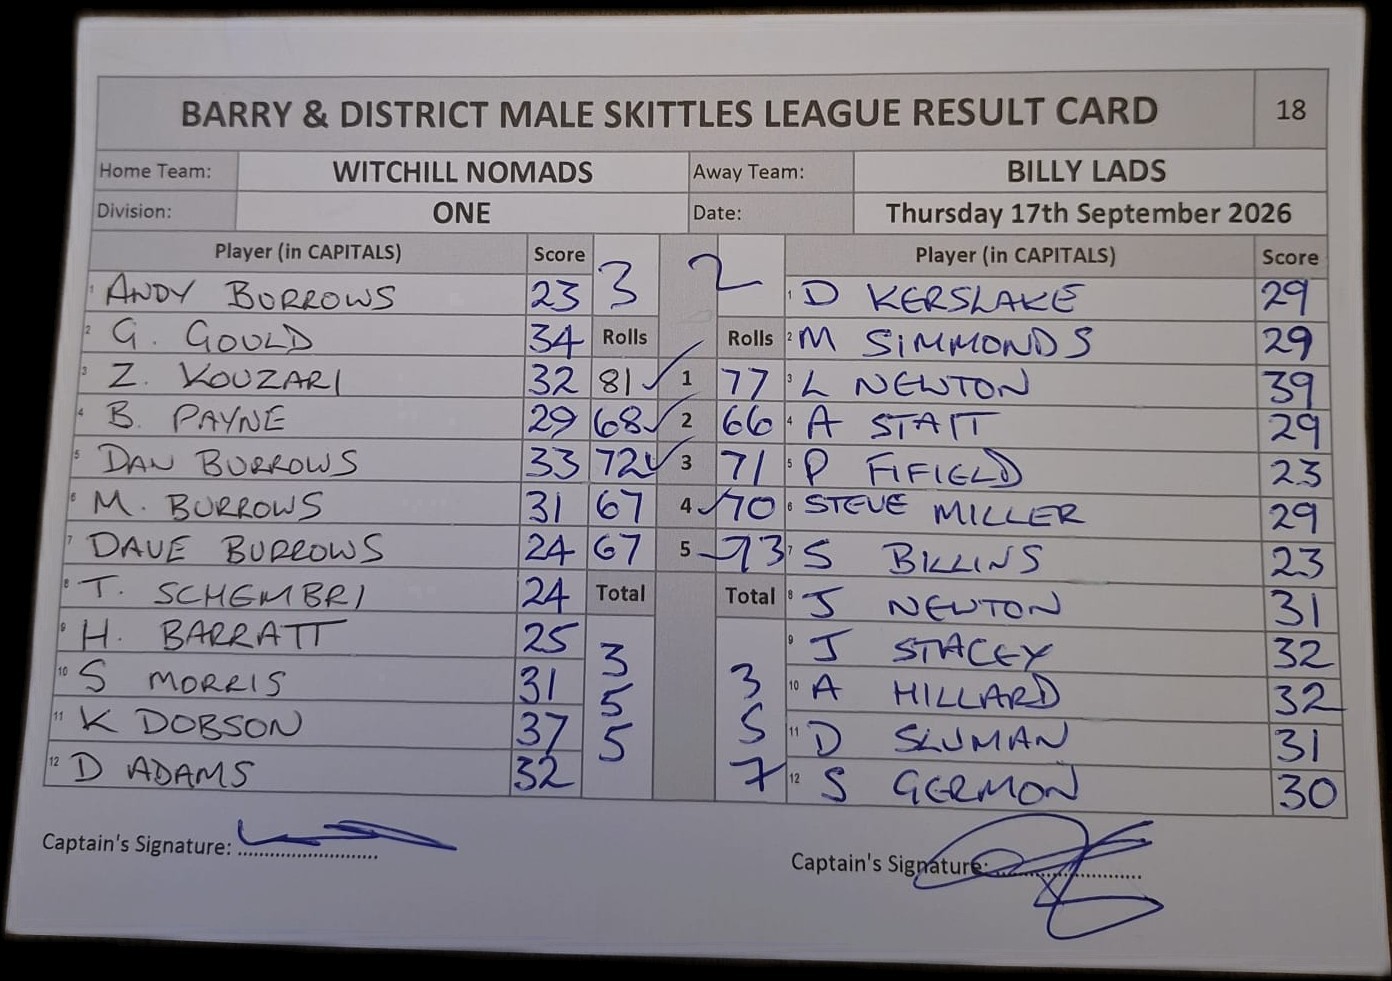 BARRY & DISTRICT MALE SKITTLES LEAGUE RESULT CARD 18
Home Team: WITCHILL NOMADS Away Team: BILLY LADS
Division: ONE Date: Thursday 17th September 2026
Player (in CAPITALS) Score 3 2 Player (in CAPITALS) Score
1 ANDY BURROWS 23 1 D KERSLAKE 29
2 G. GOULD 34 Rolls Rolls 2 M SIMMONDS 29
3 Z. KOUZARI 32 81 ✓ 1 77 3 L NEWTON 39
4 B. PAYNE 29 68 ✓ 2 66 4 A STATT 29
5 DAN BURROWS 33 72 ✓ 3 71 5 P FIFIELD 23
6 M. BURROWS 31 67 4 ✓ 70 6 STEVE MILLER 29
7 DAVE BURROWS 24 67 5 ✓ 73 7 S BILLINS 23
8 T. SCHEMBRI 24 Total Total 8 J NEWTON 31
9 H. BARRATT 25 3 9 J STACEY 32
10 S MORRIS 31 5 3 10 A HILLARD 32
11 K DOBSON 37 5 5 11 D SLUMAN 31
12 D ADAMS 32 7 12 S GERMON 30
Captain's Signature: Captain's Signature: